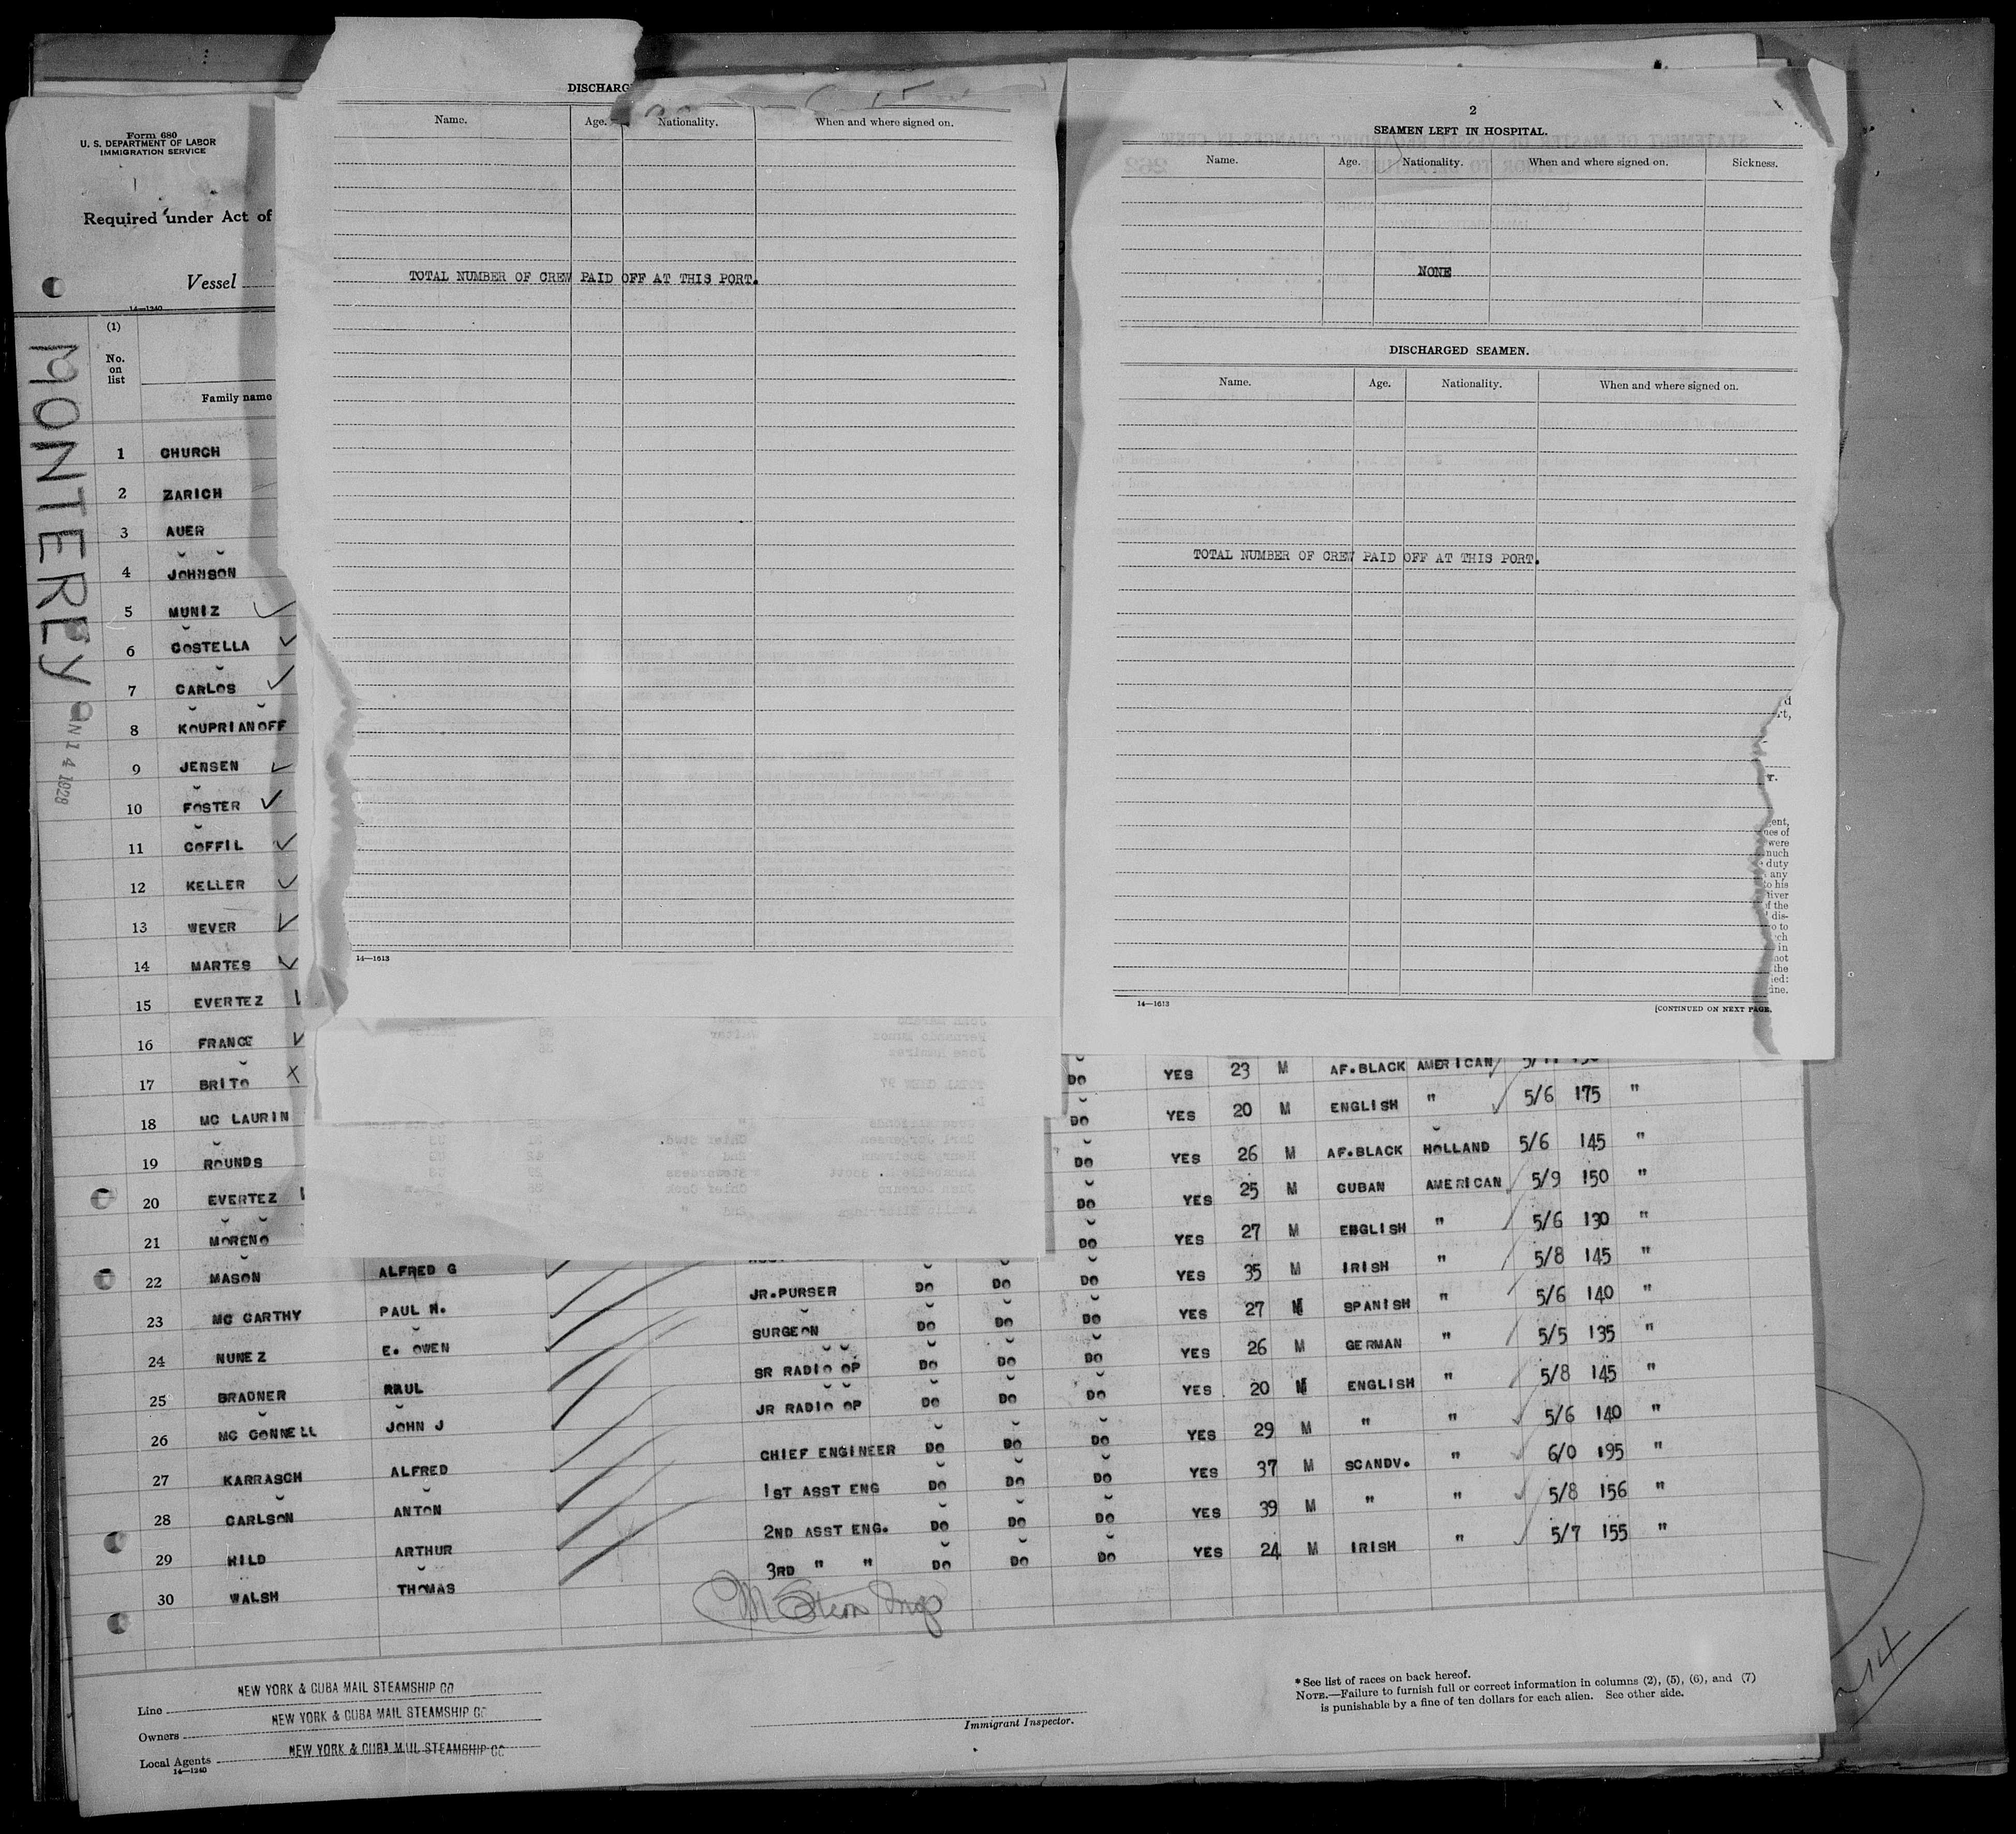 Form 680
U. S. DEPARTMENT OF LABOR
IMMIGRATION SERVICE
Required under Act of
Vessel
14—1240
(1)
No.
on
list
Family name
MONTEREY
N 14 1928
1 CHURCH
2 ZARICH
3 AUER
4 JOHNSON
5 MUNIZ
6 COSTELLA
7 CARLOS
8 KOUPRIANOFF
9 JENSEN
10 FOSTER
11 COFFIL
12 KELLER
13 WEVER
14 MARTES
15 EVERTEZ
16 FRANCE
17 BRITO
18 MC LAURIN
19 ROUNDS
20 EVERTEZ
21 MORENO
22 MASON ALFRED G
23 MC CARTHY PAUL H.
24 NUNEZ E. OWEN
25 BRADNER RAUL
26 MC CONNELL JOHN J
27 KARRASCH ALFRED
28 CARLSON ANTON
29 HILD ARTHUR
30 WALSH THOMAS
DISCHARG
Name. Age. Nationality. When and where signed on.
TOTAL NUMBER OF CREW PAID OFF AT THIS PORT.
14—1613
2
SEAMEN LEFT IN HOSPITAL.
Name. Age. Nationality. When and where signed on. Sickness.
NONE
DISCHARGED SEAMEN.
Name. Age. Nationality. When and where signed on.
TOTAL NUMBER OF CREW PAID OFF AT THIS PORT.
14—1613
[CONTINUED ON NEXT PAGE.
DO YES 23 M AF.BLACK AMERICAN
DO YES 20 M ENGLISH " 5/6 175 "
DO YES 26 M AF.BLACK HOLLAND 5/6 145 "
DO YES 25 M CUBAN AMERICAN 5/9 150 "
DO YES 27 M ENGLISH " 5/6 130 "
JR.PURSER DO DO DO YES 35 M IRISH " 5/8 145 "
SURGEON DO DO DO YES 27 M SPANISH " 5/6 140 "
SR RADIO OP DO DO DO YES 26 M GERMAN " 5/5 135 "
JR RADIO OP DO DO DO YES 20 M ENGLISH " 5/8 145 "
CHIEF ENGINEER DO DO DO YES 29 M " " 5/6 140 "
1ST ASST ENG DO DO DO YES 37 M SCANDV. " 6/0 195 "
2ND ASST ENG. DO DO DO YES 39 M " " 5/8 156 "
3RD " " DO DO DO YES 24 M IRISH " 5/7 155 "
Line NEW YORK & CUBA MAIL STEAMSHIP CO
Owners NEW YORK & CUBA MAIL STEAMSHIP CO
Local Agents NEW YORK & CUBA MAIL STEAMSHIP CO
14—1240
Immigrant Inspector.
* See list of races on back hereof.
NOTE.—Failure to furnish full or correct information in columns (2), (5), (6), and (7)
is punishable by a fine of ten dollars for each alien. See other side.
14